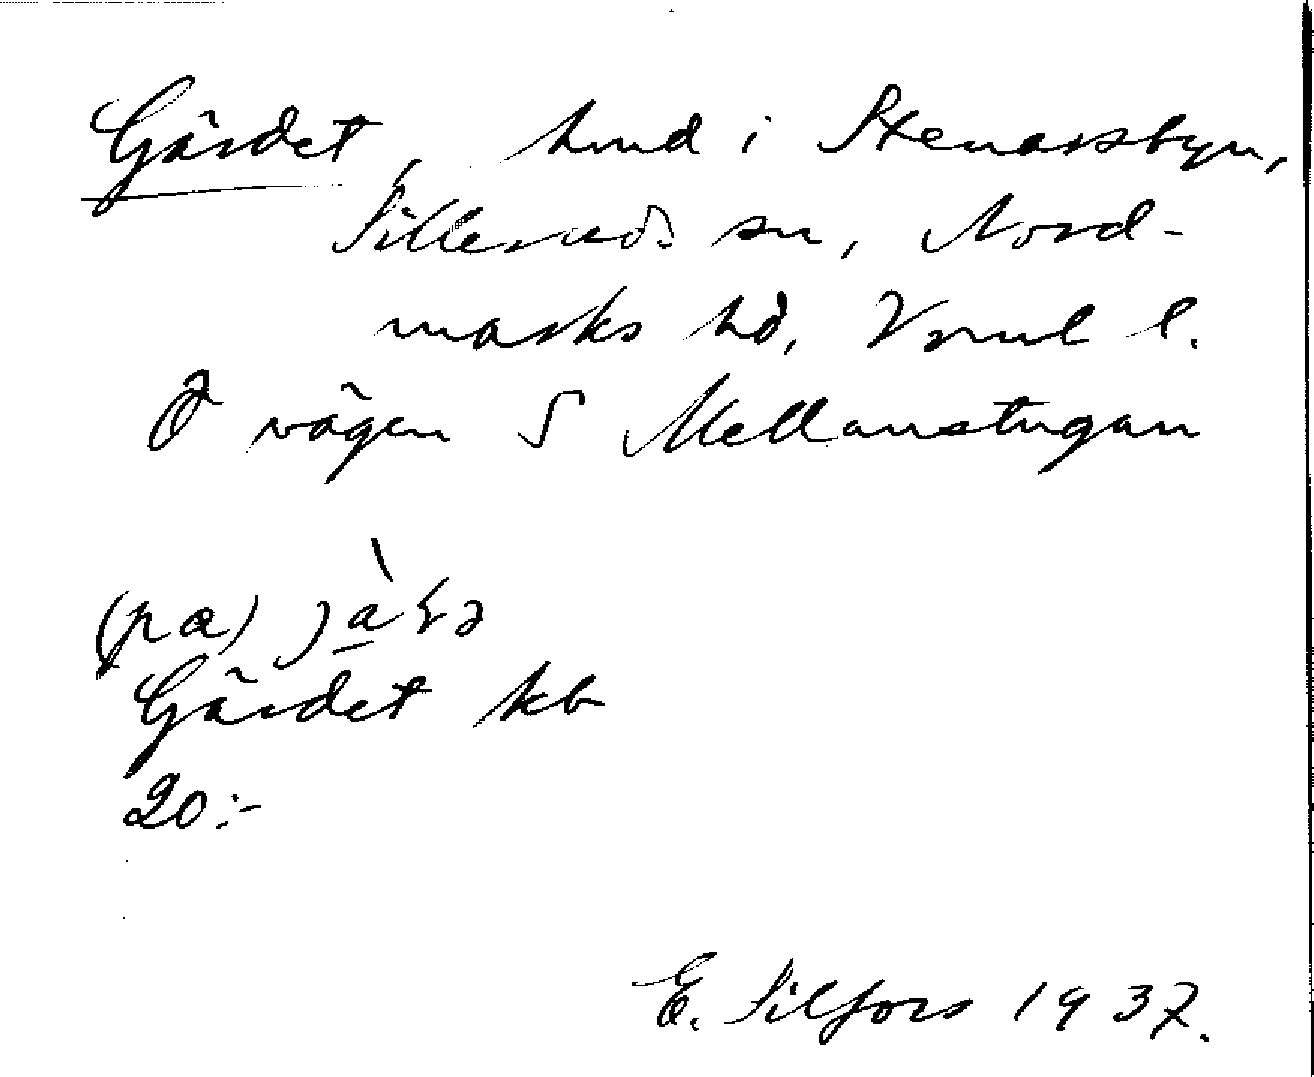 Gärdet, hmd i Stenarsbyn,
Sillerud. sn, Nord-
marks hd, Vrml l.
Ö vägen S Mellanstugan
(pa)
Gärdet kb
20:-
E. Silfors 1937.